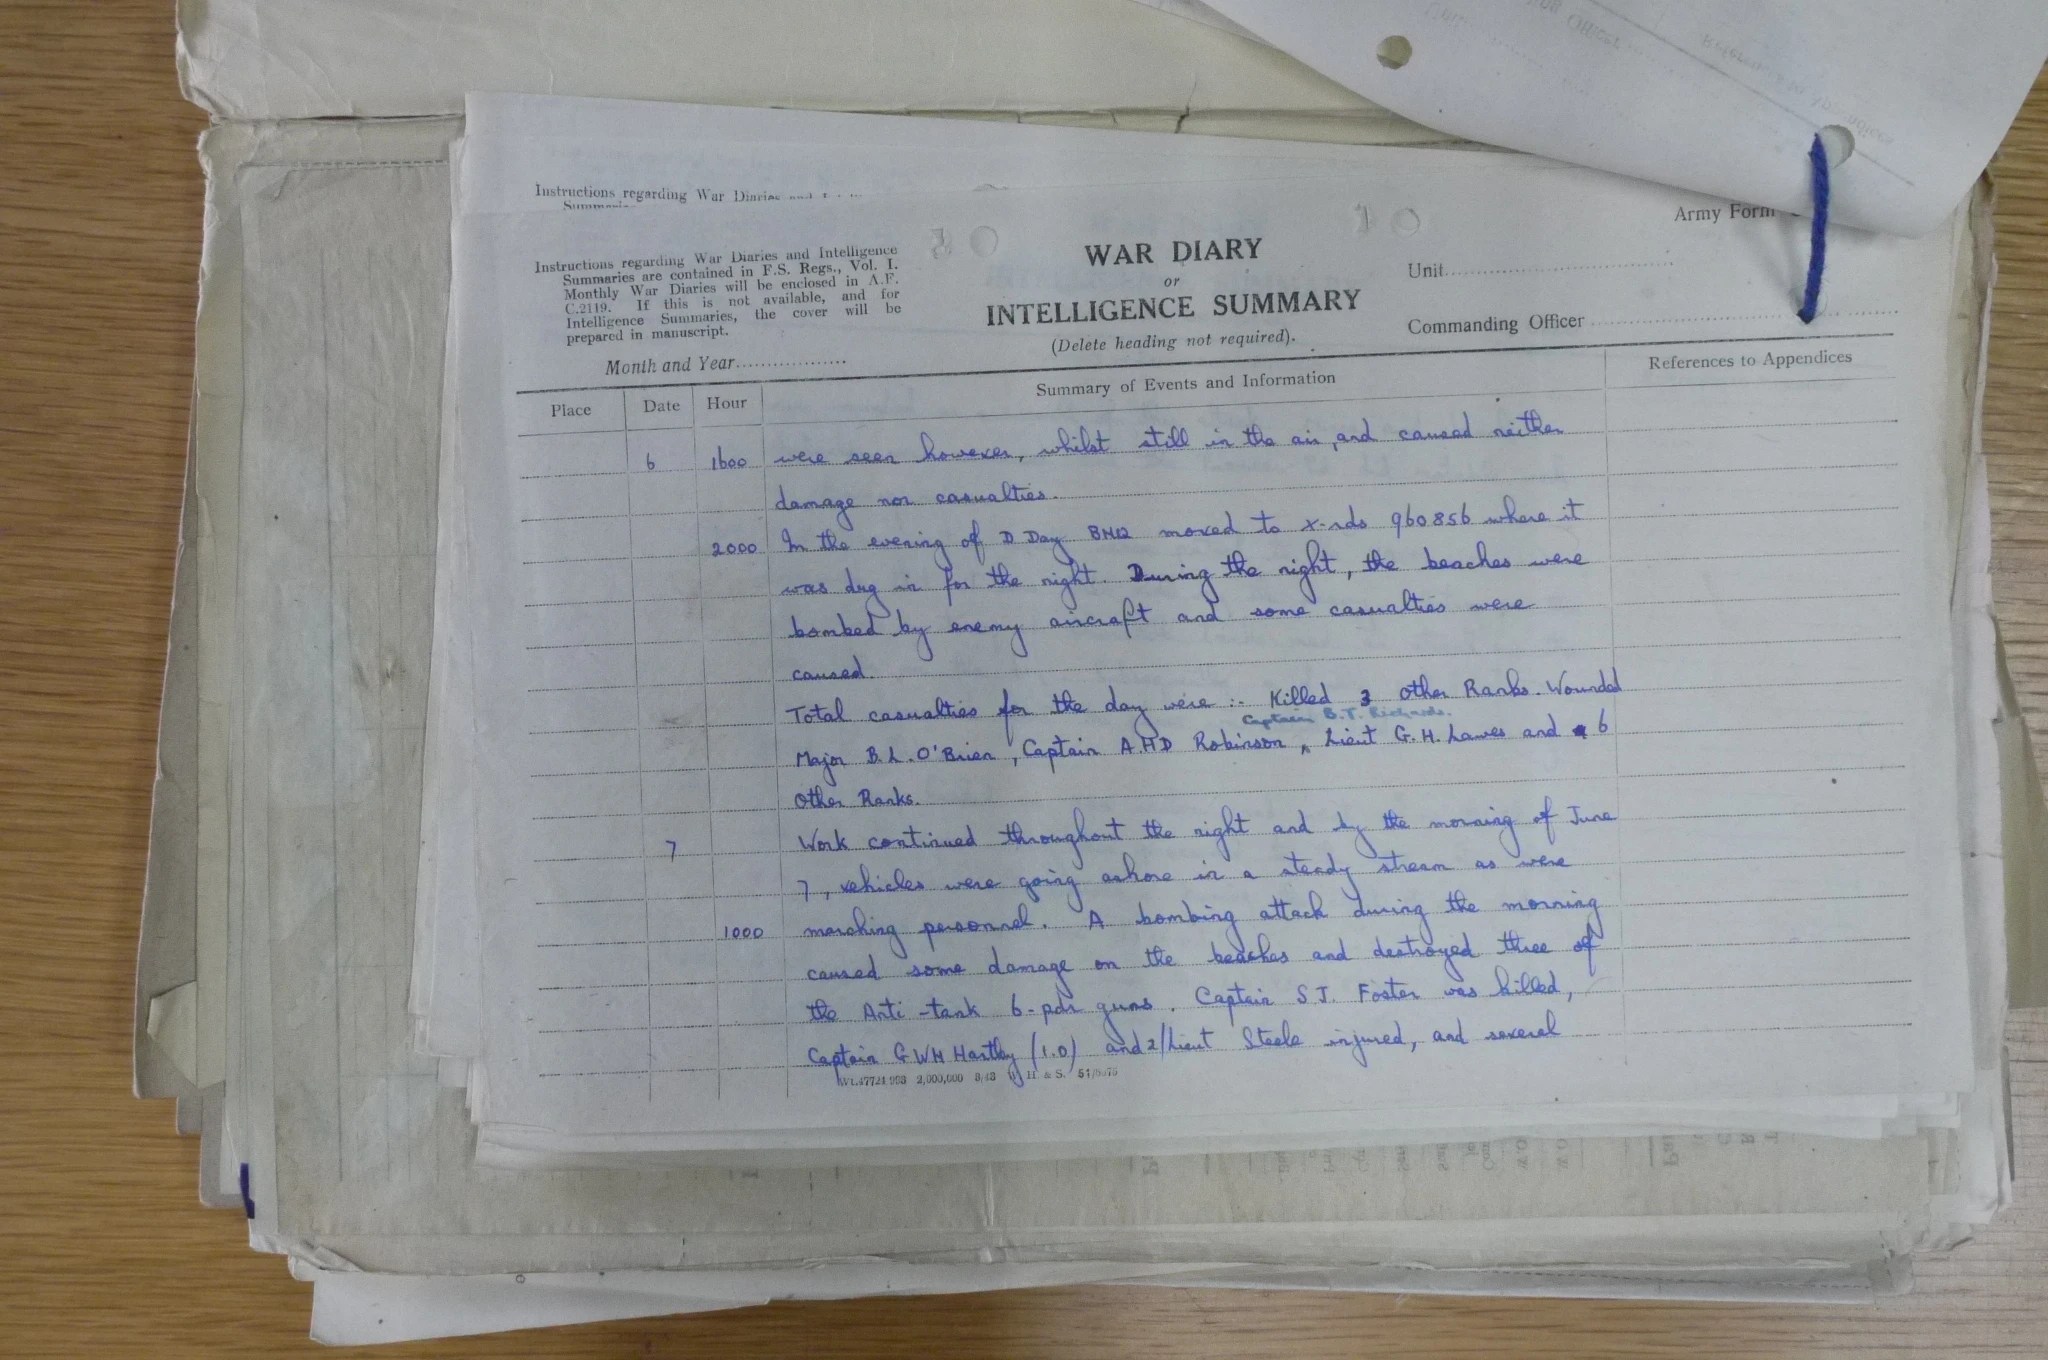 Instructions regarding War Diaries and
Army Form
Instructions regarding War Diaries and Intelligence
Summaries are contained in F.S. Regs., Vol. I.
Monthly War Diaries will be enclosed in A.F.
C.2119. If this is not available, and for
Intelligence Summaries, the cover will be
prepared in manuscript.
Month and Year
WAR DIARY
or
INTELLIGENCE SUMMARY
(Delete heading not required).
Unit
Commanding Officer
Place Date Hour Summary of Events and Information References to Appendices
6 1600 were seen however, whilst still in the air, and caused neither
damage nor casualties.
2000 In the evening of D Day BHQ moved to X-rds 960856 where it
was dug in for the night. During the night, the beaches were
bombed by enemy aircraft and some casualties were
caused.
Total casualties for the day were :- Killed 3 other Ranks. Wounded
Captain B.T. Richards.
Major B.L. O'Brien, Captain A.H.D Robinson, Lieut G.H. Lawes and 6
Other Ranks.
7 Work continued throughout the night and by the morning of June
7, vehicles were going ashore in a steady stream as were
1000 marching personnel. A bombing attack during the morning
caused some damage on the beaches and destroyed three of
the Anti-tank 6-pdr guns. Captain S J. Foster was killed,
Captain G W H Hartley (I.O) and 2/Lieut Steele injured, and several
2,000,000 8/43 W H & S.